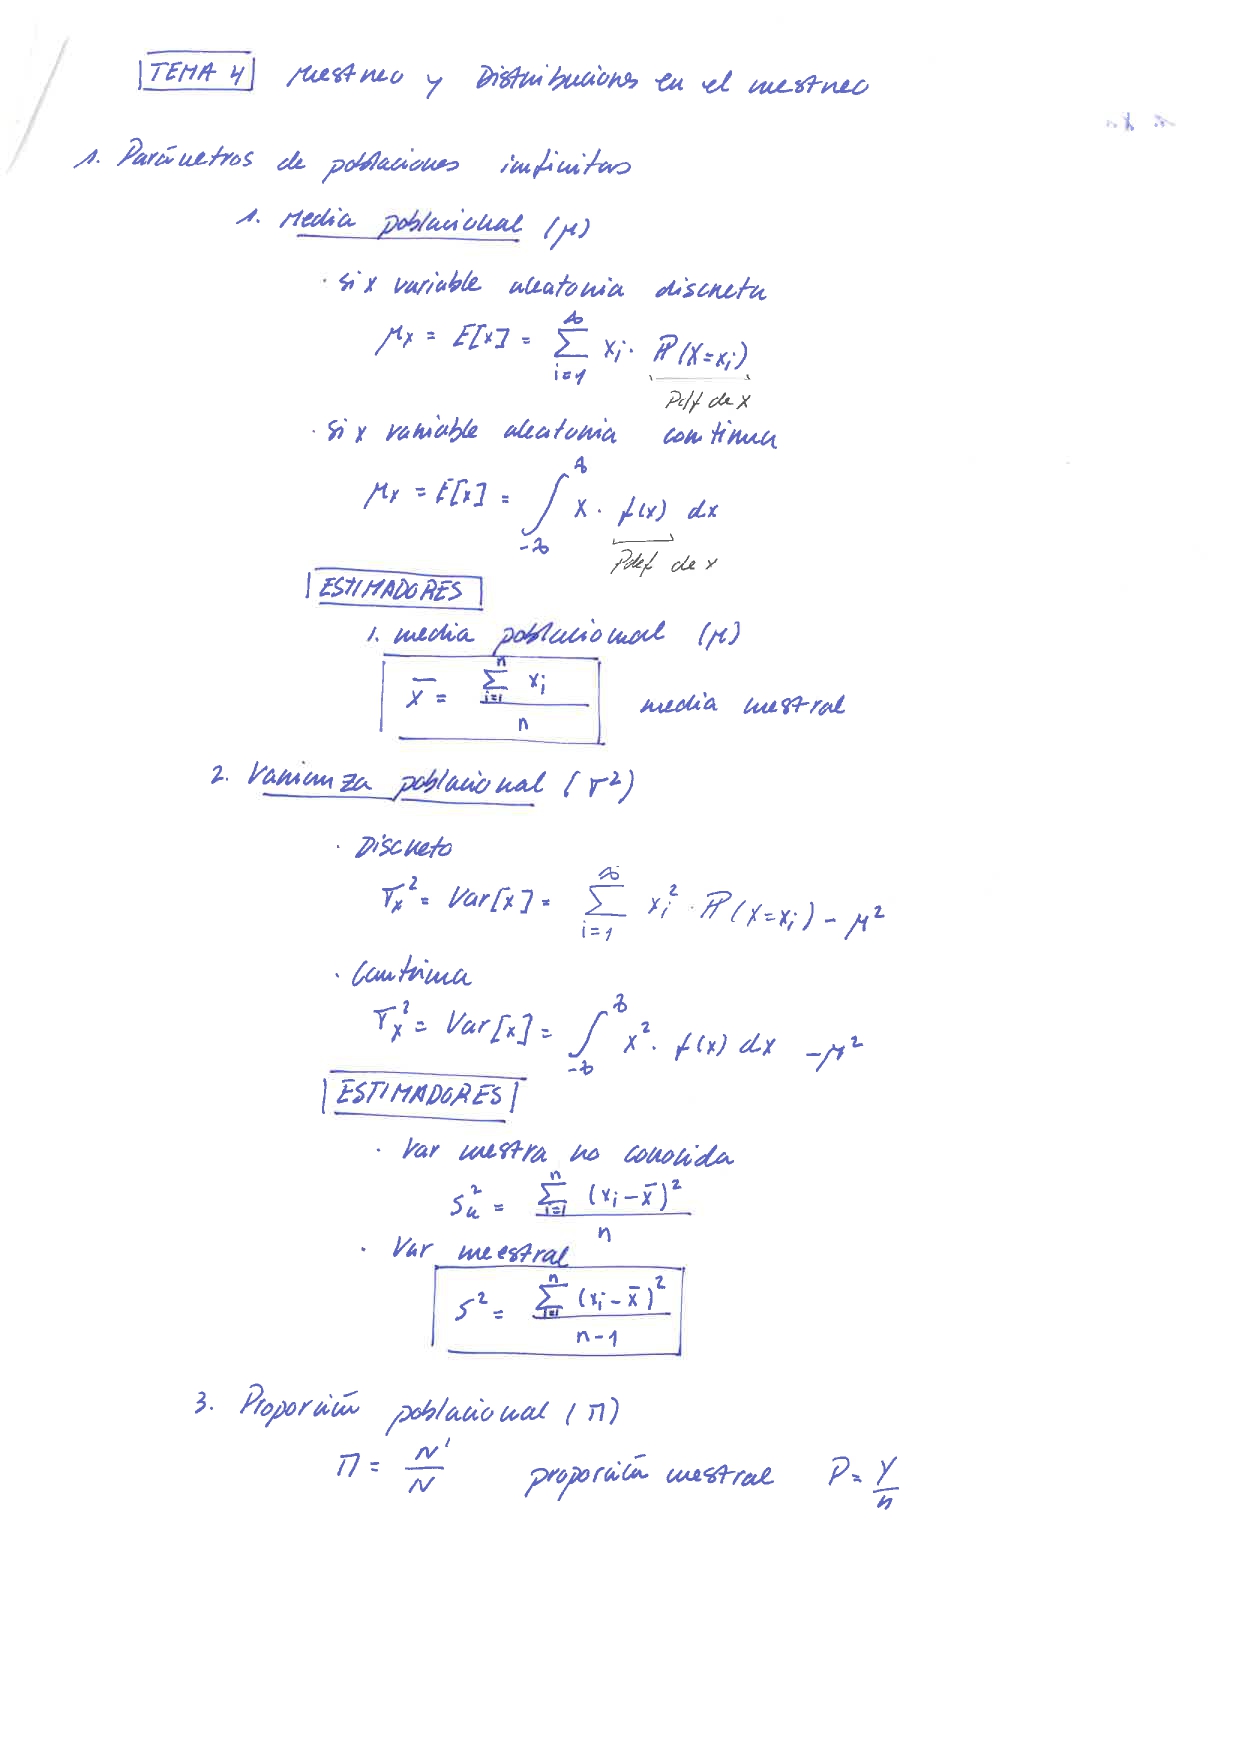 TEMA 4 Muestreo y Distribuciones en el muestreo
1. Parámetros de poblaciones infinitas
1. Media poblacional (μ)
· Si x variable aleatoria discreta
μx = E[x] = ∑_{i=1}^{∞} xi · ℙ(X=xi)
Pdf de x
· Si x variable aleatoria continua
μx = E[x] = ∫_{-∞}^{∞} x · f(x) dx
Pdef de x
ESTIMADORES
1. media poblacional (μ)
x̄ = ∑_{i=1}^{n} xi / n media muestral
2. Varianza poblacional (σ²)
· Discreto
σx² = Var[x] = ∑_{i=1}^{∞} xi² · ℙ(X=xi) - μ²
· Continua
σx² = Var[x] = ∫_{-∞}^{∞} x² · f(x) dx - μ²
ESTIMADORES
· Var muestra no conocida
Su² = ∑_{i=1}^{n} (xi - x̄)² / n
· Var muestral
S² = ∑_{i=1}^{n} (xi - x̄)² / n-1
3. Proporción poblacional (Π)
Π = N' / N proporción muestral P = Y / n